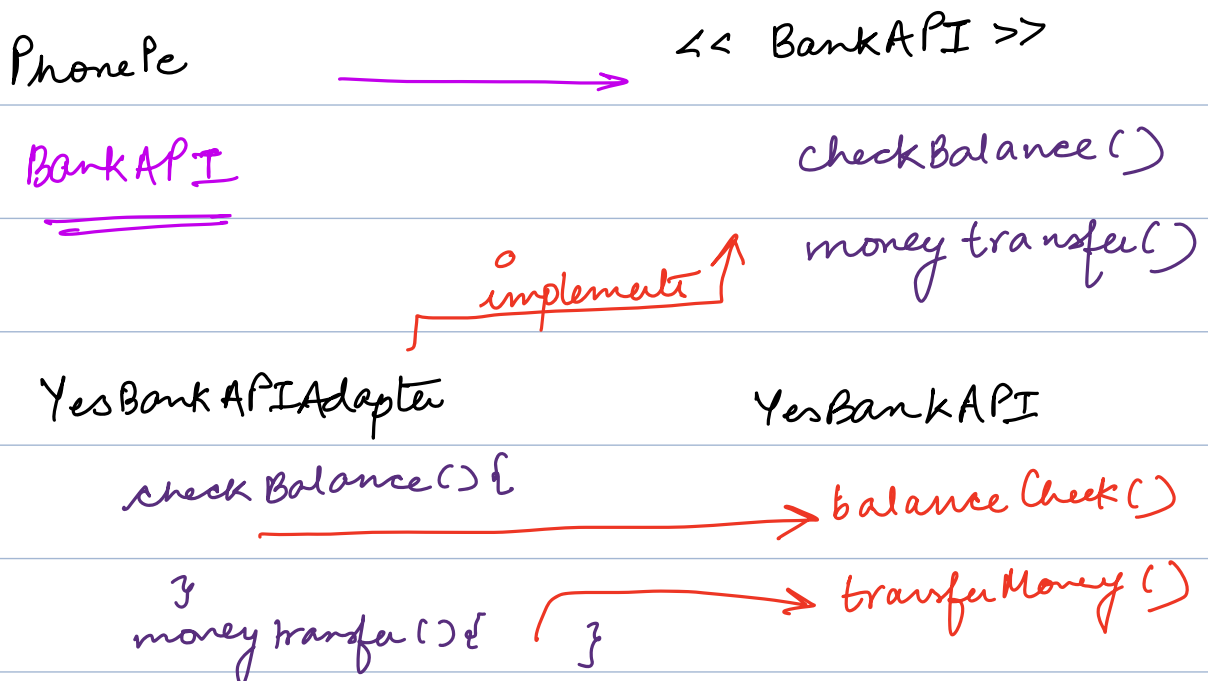 PhonePe << BankAPI >>
BankAPI checkBalance()
moneytransfer()
implements
YesBankAPIAdapter YesBankAPI
checkBalance(){ balanceCheck()
} transferMoney()
moneytransfer(){ }